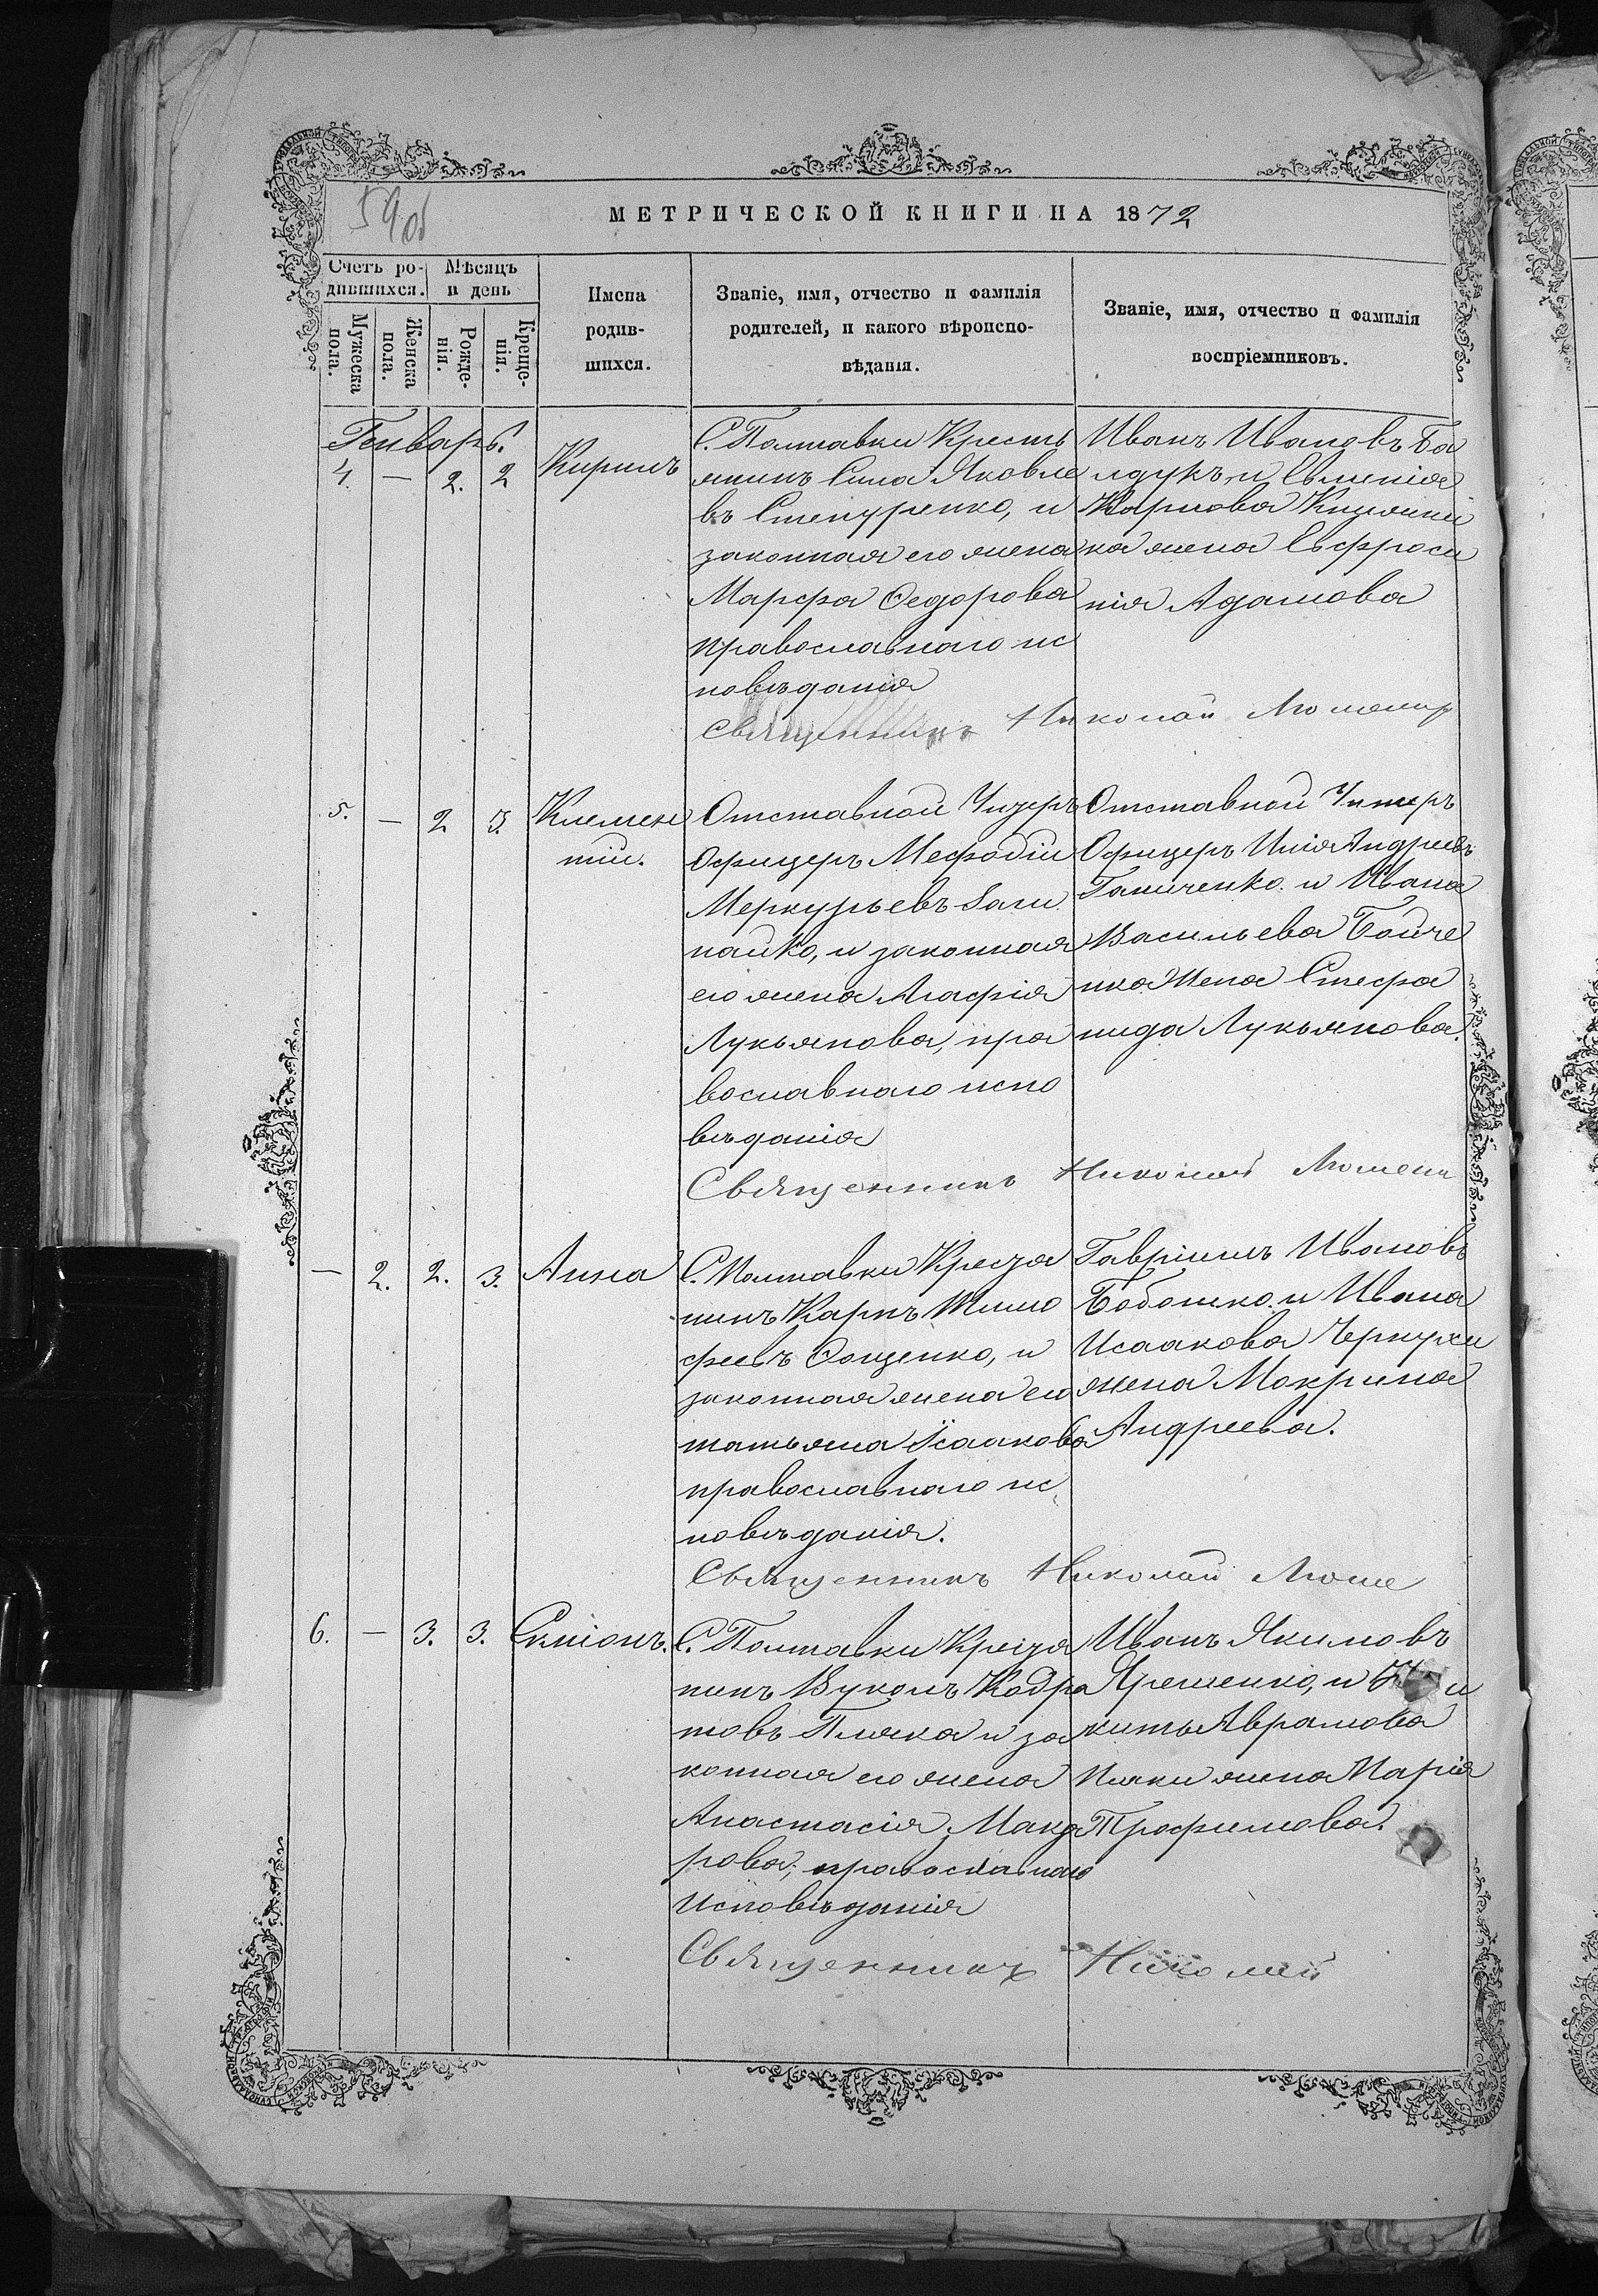 59об
МЕТРИЧЕСКОЙ КНИГИ НА 1872
Счетъ ро-
дившихся.
Мѣсяцъ
и день
Мужеска
пола.
Женска
пола.
Рожде-
нія.
Креще-
нія.
Имена
родив-
шихся.
Званіе, имя, отчество и фамилія
родителей, и какого вѣроиспо-
вѣданія.
Званіе, имя, отчество и фамилія
воспріемниковъ.
Генварь.
4. — 2. 2
Кирилъ
С. Полтавки Кресть
янинъ Сила Яковле
въ Степуренко, и
законная его жена
Марфа Ѳедорова
православнаго ис
повѣданія
Иванъ Ивановъ Ба
лдукъ, и
Карпова
ка жена Евфроси
нія Адамова
Священникъ Николай
5. — 2 3.
Клемен
тій.
Отставной Унзеръ
Офицеръ Мефодій
Меркурьевъ
найко, и законная
его жена Агафія
Лукьянова, пра
вославнаго испо
вѣданія
Отставной Унтеръ
Офицеръ Илія Андреевъ
Ганиченко и Ивана
Васильева Бойче
нка жена Стефа
нида Лукьянова.
Священникъ Николай
— 2. 2. 3.
Анна
С. Полтавки Креся
нинъ Карпъ Тимо
феевъ Ооценко, и
законная жена его
татьяна Ісаакова
православнаго ис
повѣданія.
Гавріилъ Ивановъ
Бобошко и Ивана
Исаакова
жена Макрина
Андреева.
Священникъ Николай
6. — 3. 3.
Симіонъ.
С. Полтавки Кресія
нинъ Вуколъ Кодра
товъ Пляка и за
конная его жена
Анастасія Мака
рова; православнаго
исповѣданія
Иванъ Якимовъ
Яременко, и
Аврамова
Пляки жена Марія
Трофимова.
Священникъ Николай